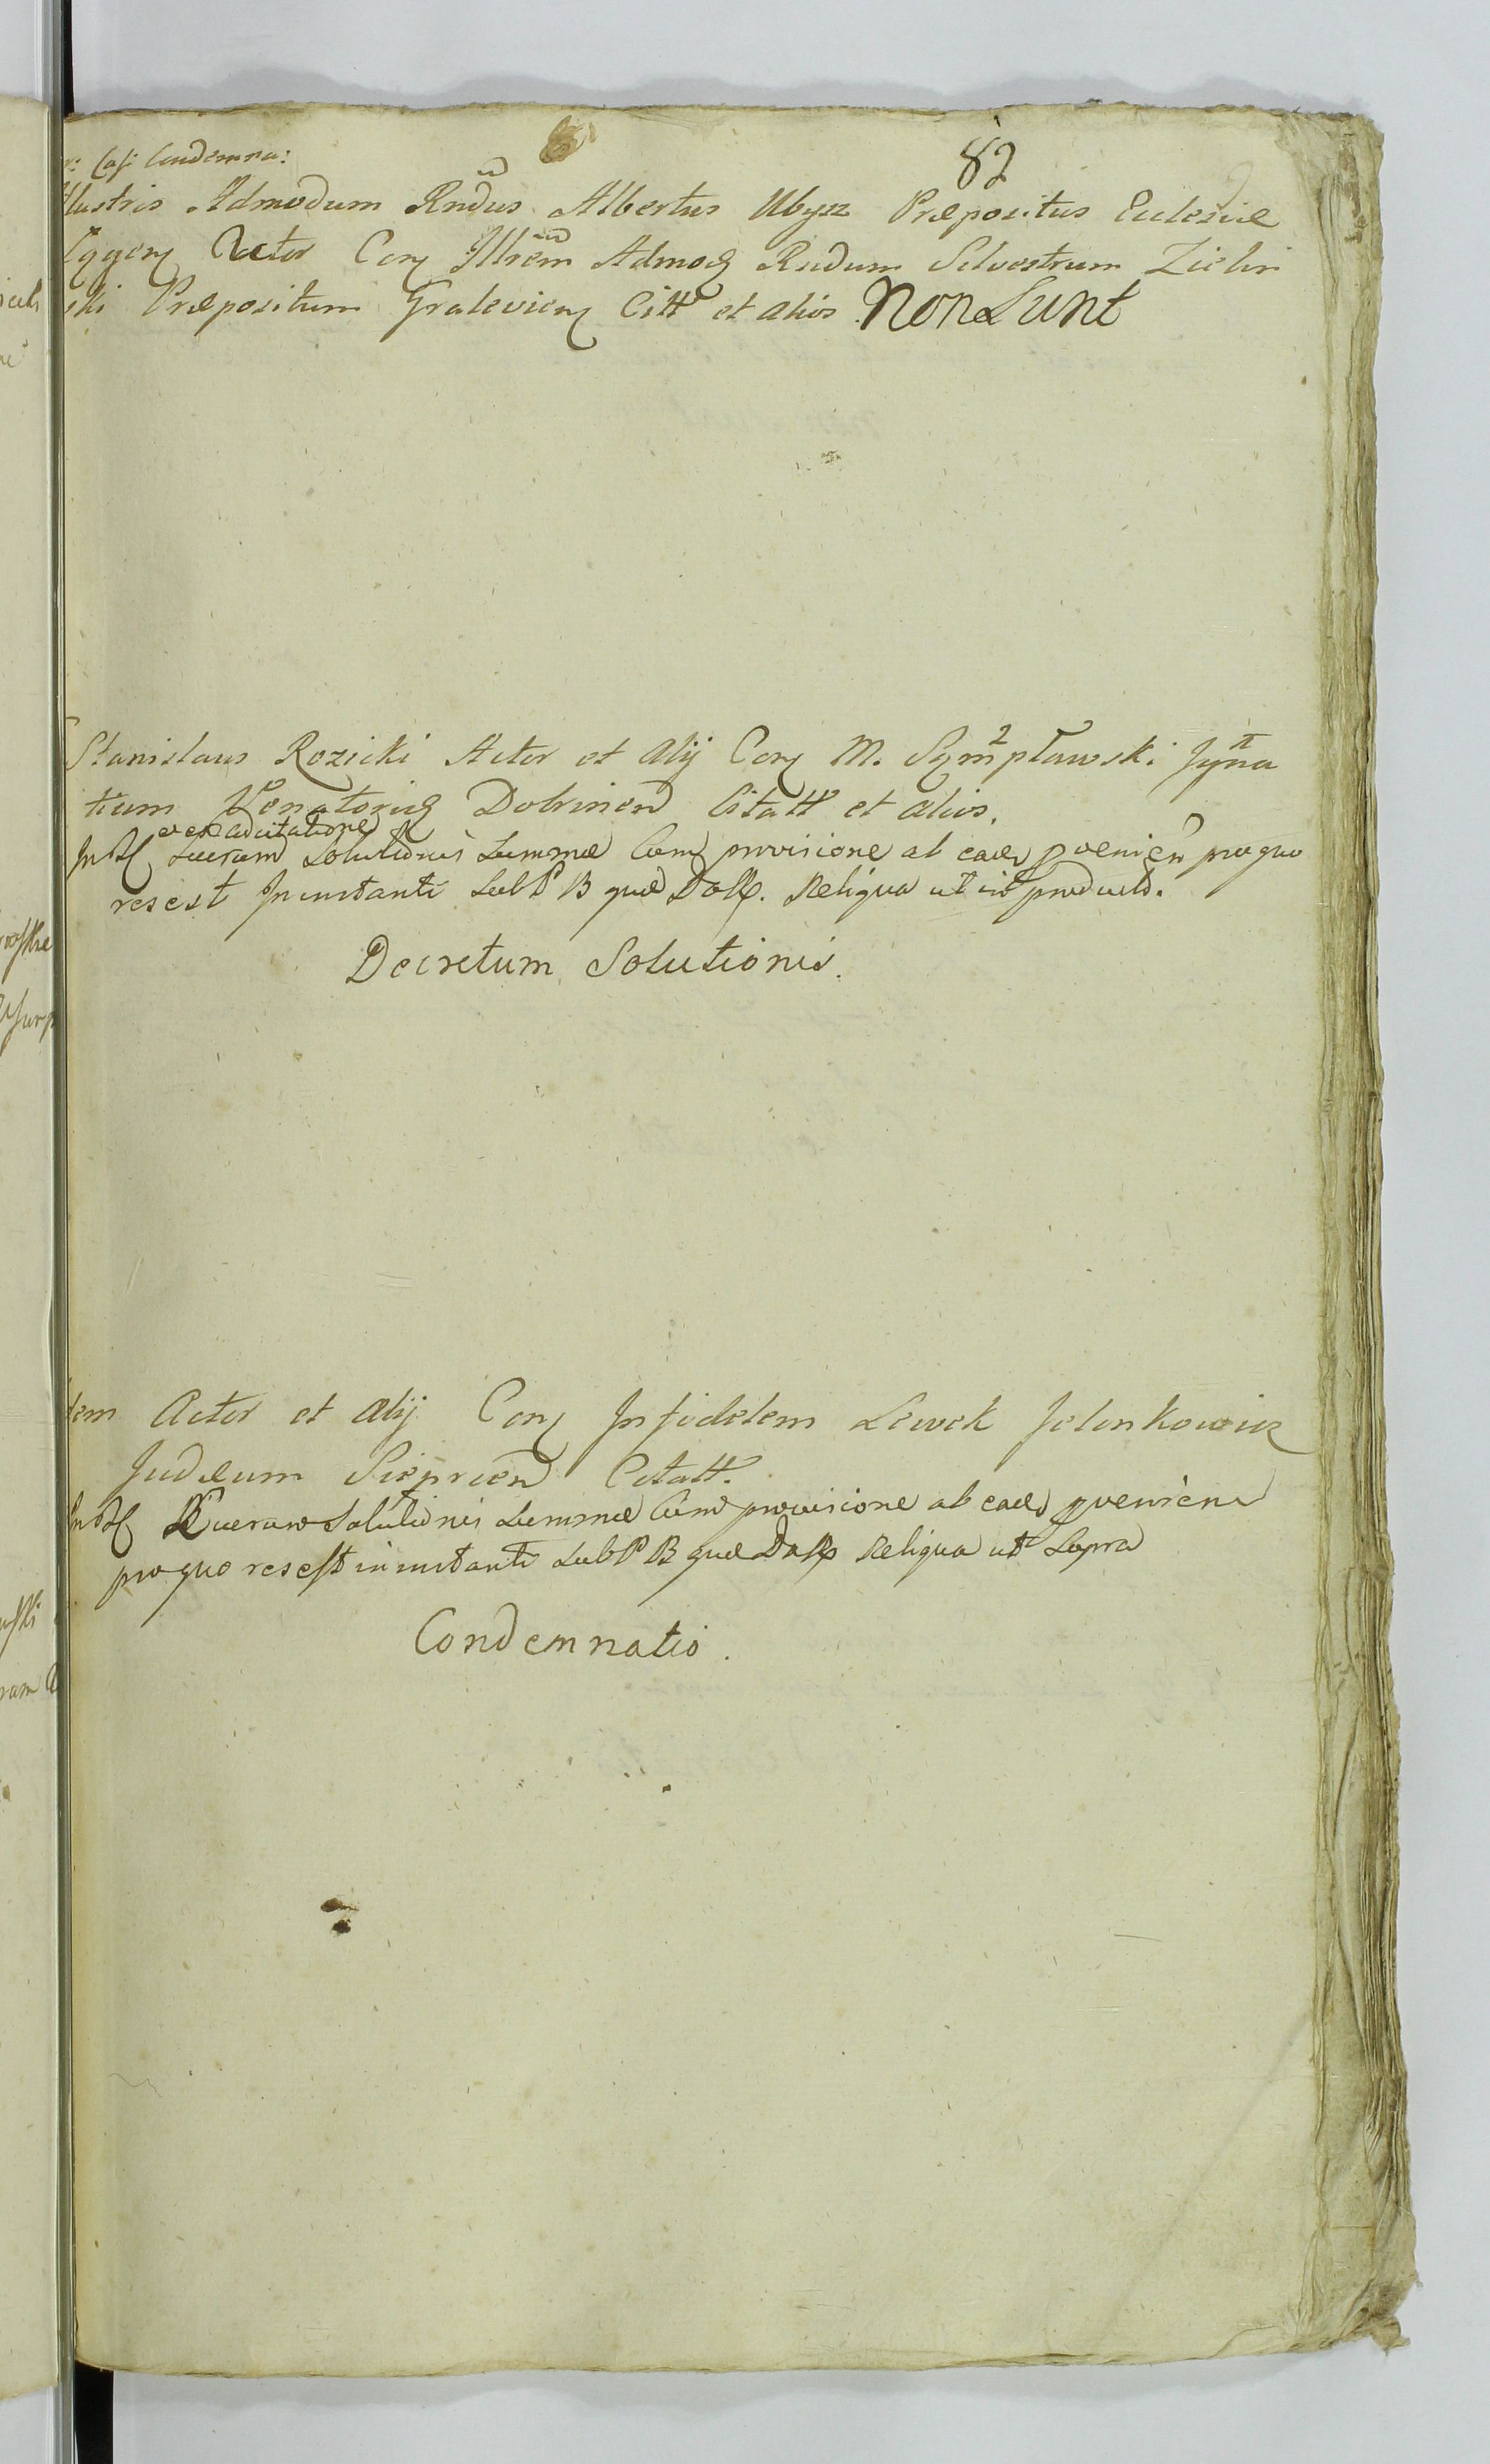 82
Casi Condemna:
llustris Admodum Rndus Albertus Ubysz Præpositus Ecclesiæ
Actor Con Illrem Admod Rndum Silvestrum Zielin
ski Præpositum Gralevien Citt et alios Non Sunt
Stanislaus Rozicki Actor et alij Con M. Szymplawski Igna
tium Venatorid Dobrinen Citatt et alios.
et ex adcitatione
solutionis Summæ Cum provisione ab eade proenien pro quo
res est In instanti Sub P B quæ Reliqua ut in producto.
Decretum Solutionis.
dem Actor et alij Con Infidelem Lewek Jelenkowicz
Judæum Sieprcen Citatt.
Solutionis Summæ Cum provisione ab eade proenien
pro quo res est in instanti Sub P B quæ Reliqua ut Supra
Condemnatio.